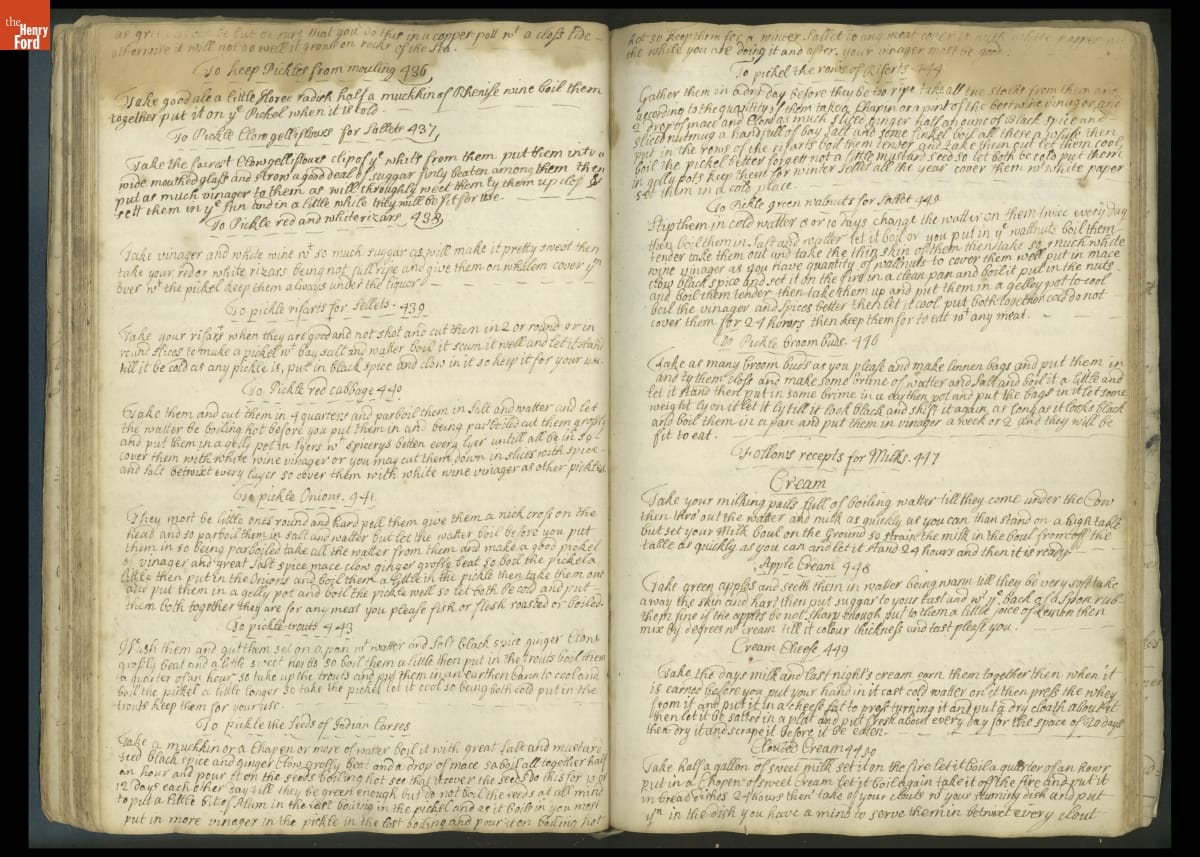 the Henry Ford
that you do this in a copper pott wt a closs lide
otherwise it will not do well it grows on rocks of the Sea.
To keep Pickles from mouling 436
Take good ale a little Horee radish half a muchkin of Rhenise wine boil them
together put it on ye Pickel when it is cold
To Pickle Clowgelliflowrs for Sallets 437
Take the fairest Clowgelliflours clip of ye whits from them put them into a
wide mouthed glass and strow a good deal of suggar finly beaten among them then
put as much vinager to them as will throughly weet them ty them up closs &
sett them in ye Sun and in a little while they will be fit for use.
To Pickle red and white rizars 438
Take vinager and white wine wt so much suggar as will make it pretty sweet then
take your red or white rizars being not full ripe and give them on whalem cover ym
over wt the pickel keep them always under the liquor
To pickle rifarts for Sellets - 439
Take your rifarts when they are good and not shot and cut them in 2 or round or in
round slices to make a pickel wt bay salt and watter boil it scum it well and let it stand
till it be cold as any pickle is, put in black spice and clow in it so keep it for your use.
To Pickle red Cabbage 440
Take them and cut them in 4 quarters and parboil them in salt and watter and let
the watter be boiling hot before you put them in and being parboiled cut them grossly
and put them in a gelly pot in lyers wt spicerys betten every lyer untill all be in so
cover them with white wine vinager or you may cut them down in slices with spice
and salt betwixt every layer so cover them with white wine vinager as other pickles
To pickle Onions. 441
They most be little ones round and hard pell them give them a nick cross on the
head and so parboil them in salt and watter but let the watter boil before you put
them in so being parboiled take all the watter from them and make a good pickel
of vinager and great Salt spice mace clow ginger grosly beat so boil the pickel a
little then put in the Onions and boil them a little in the pickle then take them out
and put them in a gelly pot and boil the pickle well so let both be cold and put
them both together they are for any meat you please fish or flesh roasted or boiled.
To pickle trouts 443
Wash them and gutt them set on a pan wt watter and salt black spice ginger Clow
grosly beat and a little sweet herbs so boil them a little then put in the trouts boil them
a quarter of an hour so take up the trouts and put them in an earthen to cool and
boil the pickel a little longer so take the pickel let it cool so being both cold put in the
trouts keep them for your use.
To pickle the Seeds of Indian Corses
Take a muchkin or a Chapen or more of watter boil it with great salt and mustard
seed black spice and ginger Clow grosly beat and a drop of mace so boil all together half
an hour and pour it on the seeds boiling hot see that it cover the seeds do this for 10 or
12 days each other day till they be green enough but do not boil the seeds at all mind
to put a little bit of Alum in the last boiling in the pickel and as it boils in you most
put in more vinager in the pickle in the last boiling and pour it on boiling hot
hot so keep them for a winter Sallet to any meat cover it with white papper all
the while you are doing it and after. your vinager most be good
To pickel the rows of Rifarts 444
Gather them in a dry day before they be too ripe take all the stocks from them and
according to the quantity of them take a Chapin or a pint of the beer wine vinager, and
2 drop of mace and Clow as much sliced ginger half an ounc of black spice and
sliced nutmug a handfull of bay salt and some finkel boil all these a while then
put in the rows of the rifarts boil them tower and take them out let them cool,
boil the pickel better forgett not a little mustard seed so let both be cold put them
in gelly pots keep them for winter Sellet all the year cover them wt white paper
set them in a cold place.
To Pickle green walnuts for Sallet 445
Stip them in cold watter 8 or 10 days change the watter on them twice every day
then boil them in salt and watter let it boil or you put in ye wallnuts boil them
tender take them out and take the thin skin of them then take so much white
wine vinager as you have quantity of wallnuts to cover them well put in mace
clow black spice and set it on the fire in a clean pan and boil it put in the nuts
and boil them tender then take them up and put them in a gelley pot to cool
boil the vinager and spices better then let it cool put both together cold do not
cover them for 24 hours then keep them for to eat wt any meat.
To Pickle broom buds. 446
Take as many broom buds as you please and make linnen bags and put them in
and ty them close and make some brime of watter and Salt and boil it a little and
let it stand then put in some brime in a earthen pot and put the bags in it let some
weight ly on it let it ly till it look black and shift it again as long as it looks black
and boil them in a pan and put them in vinager a week or 2 and they will be
fit to eat.
Follows recepts for Milks. 447
Cream
Take your milking pails full of boiling watter till they come under the Cow
then thro out the watter and milk as quickly as you can than stand on a high table
but set your Milk bowl on the ground so strain the milk in the boul from off the
table as quickly as you can and let it stand 24 hours and then it is ready
Apple Cream 448
Take green apples and seeth them in watter being warm till they be very soft take
away the skin and hard then put suggar to your tast and wt ye back of a spon rub
them fine if the apples be not sharp enough put to them a little joice of Lemon then
mix by degrees wt cream till it colour thickness and tast please you.
Cream Cheese 449
Take the days milk and last nights cream earn them together then when it
is earned before you put your hand in it cast cold watter on it then press the whey
from it and put it in a cheese fat to press turning it and put a dry cloath about it
then let it be salted in a plat and put fresh about every day for the space of 20 days
then dry it and scrape it before it be eaten.
Clouted Cream 450
Take half a gallon of sweet milk set it on the fire let it boil a quarter of an hour
put in a Chopen of sweet Cream let it boil again take it off the fire and put it
in bread dishes 24 hours then take of your clouts wt your skuming dish and put
ym in the dish you have a mind to serve them in betwixt every clout